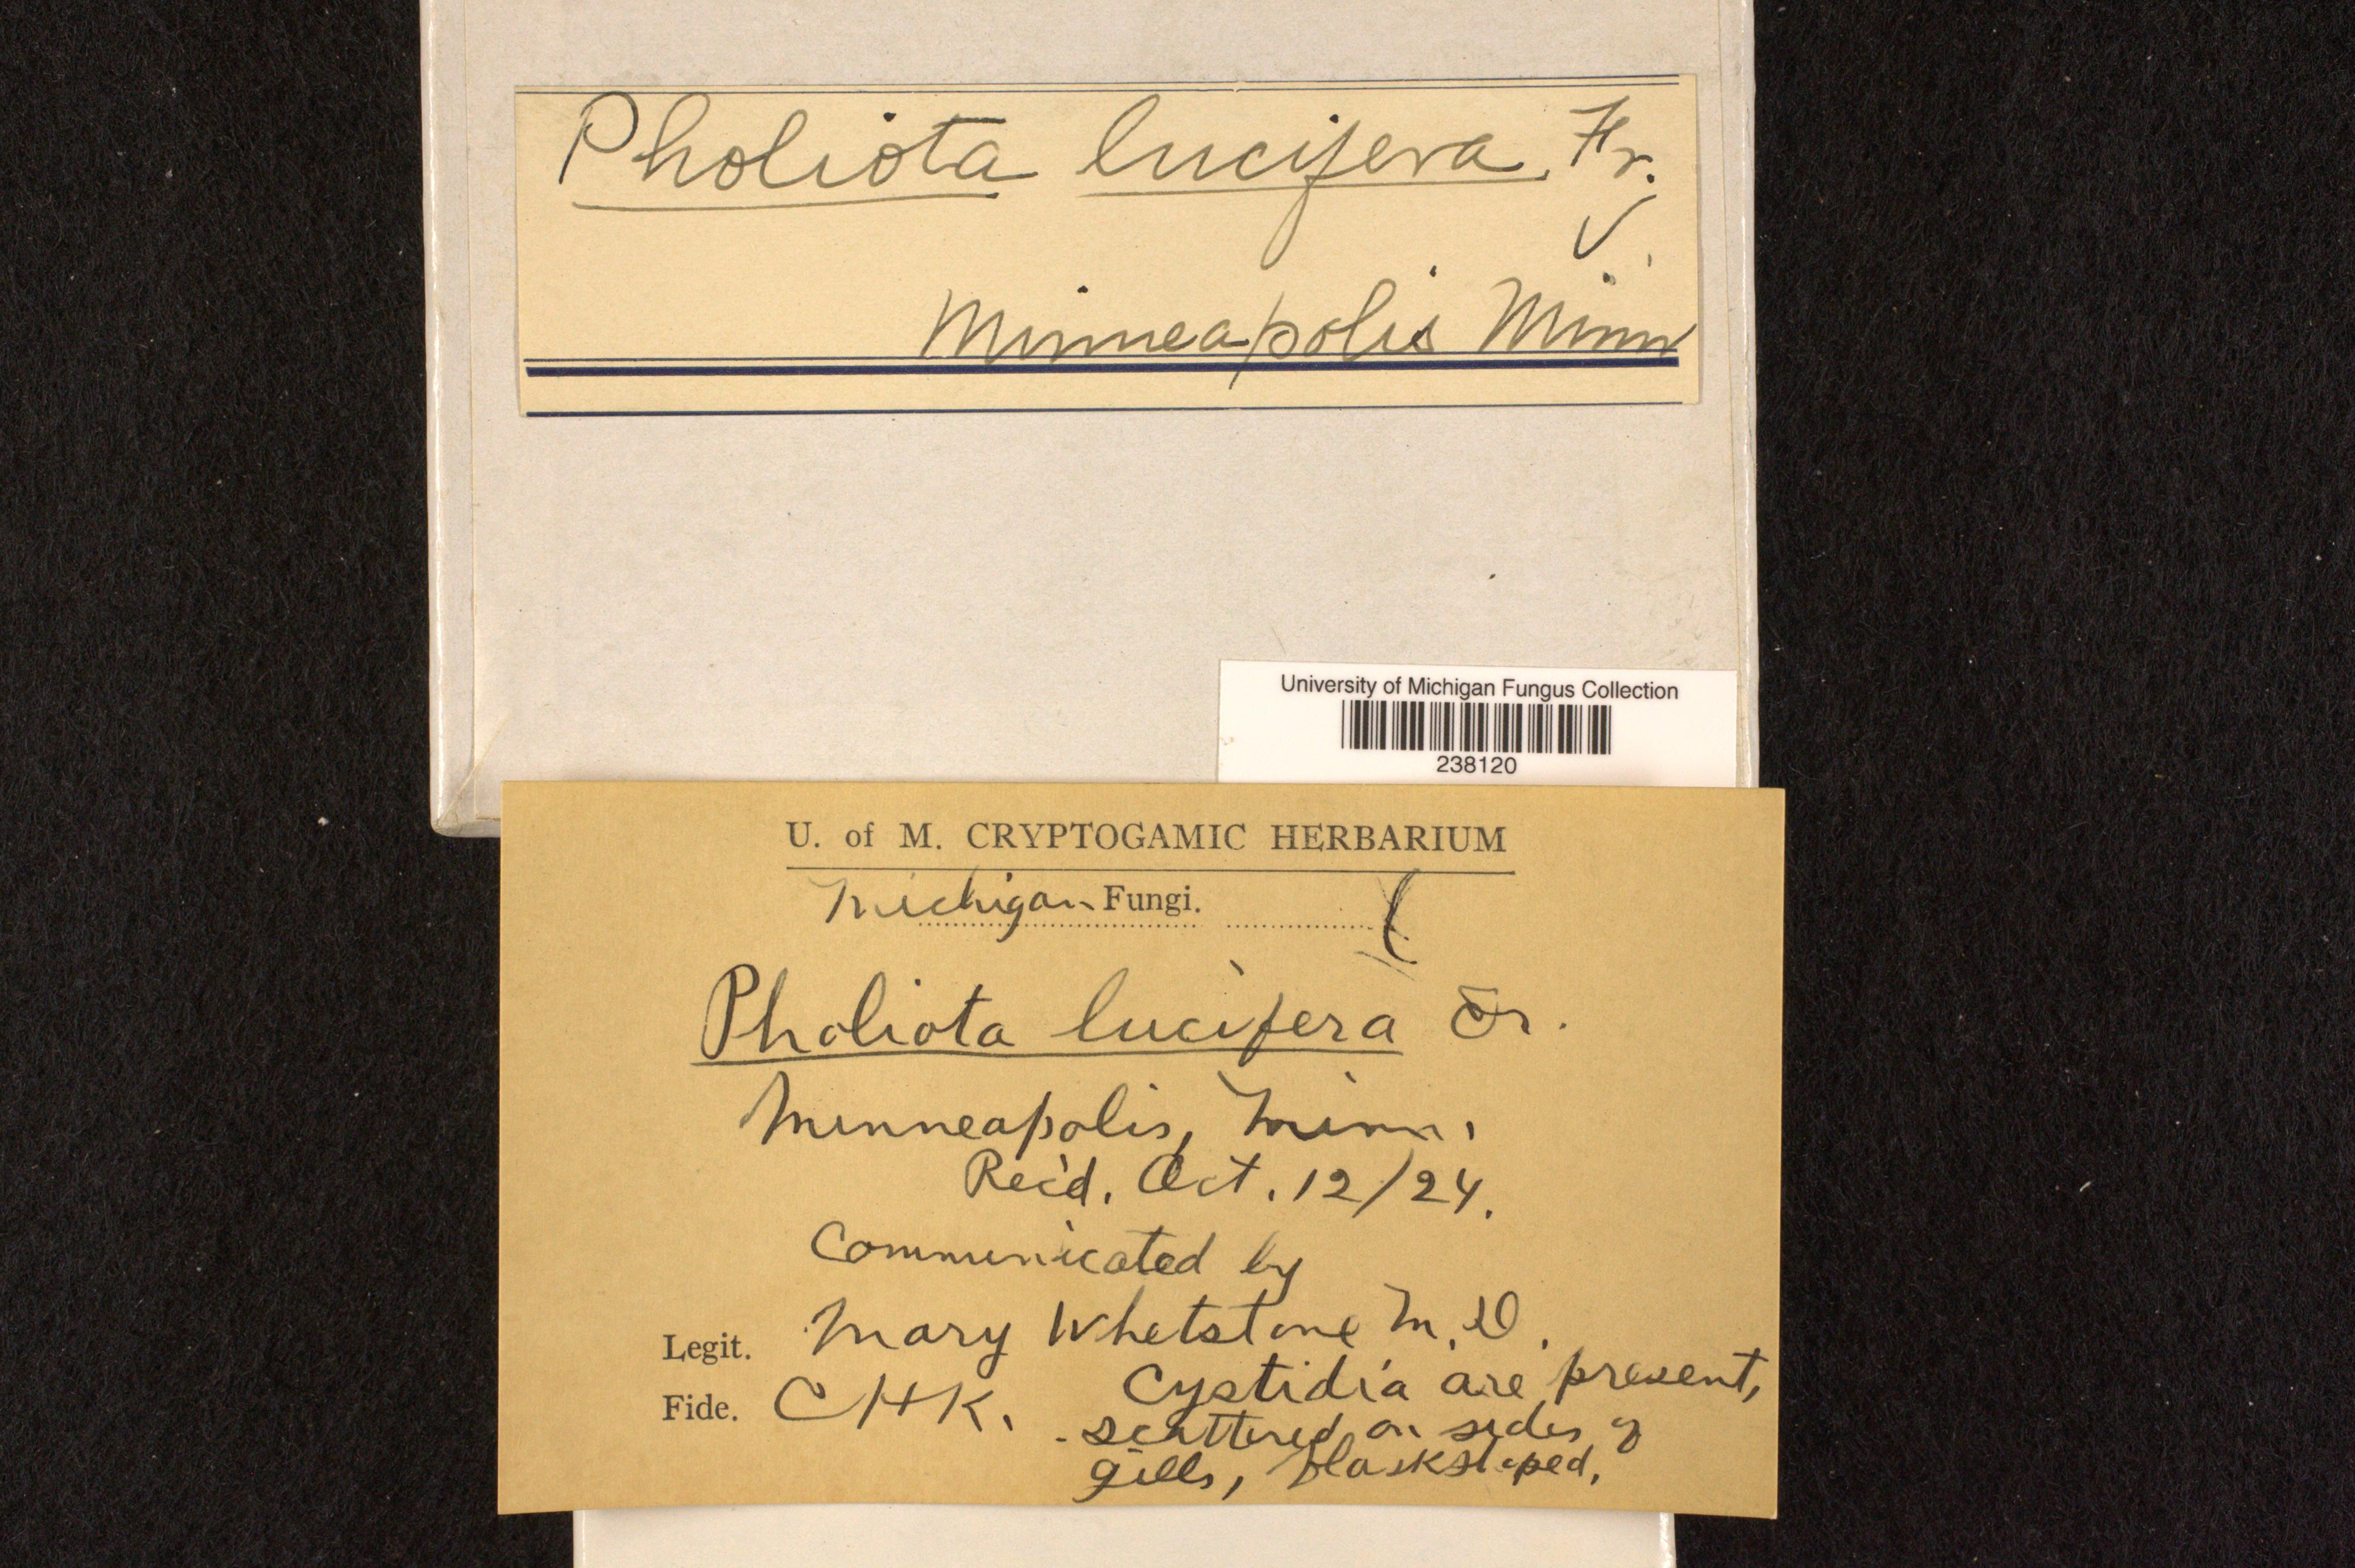 Pholiota lucifera, Fr.
Minneapolis Minn
University of Michigan Fungus Collection
238120
U. of M. CRYPTOGAMIC HERBARIUM
Michigan Fungi.
Pholiota lucifera Fr.
Minneapolis, Minn.
Rec'd. Oct. 12/24.
Communicated by
Legit. Mary Whetstone M.D.
Fide. CHK. Cystidia are present,
scattered on sides of
gills, flaskshaped.